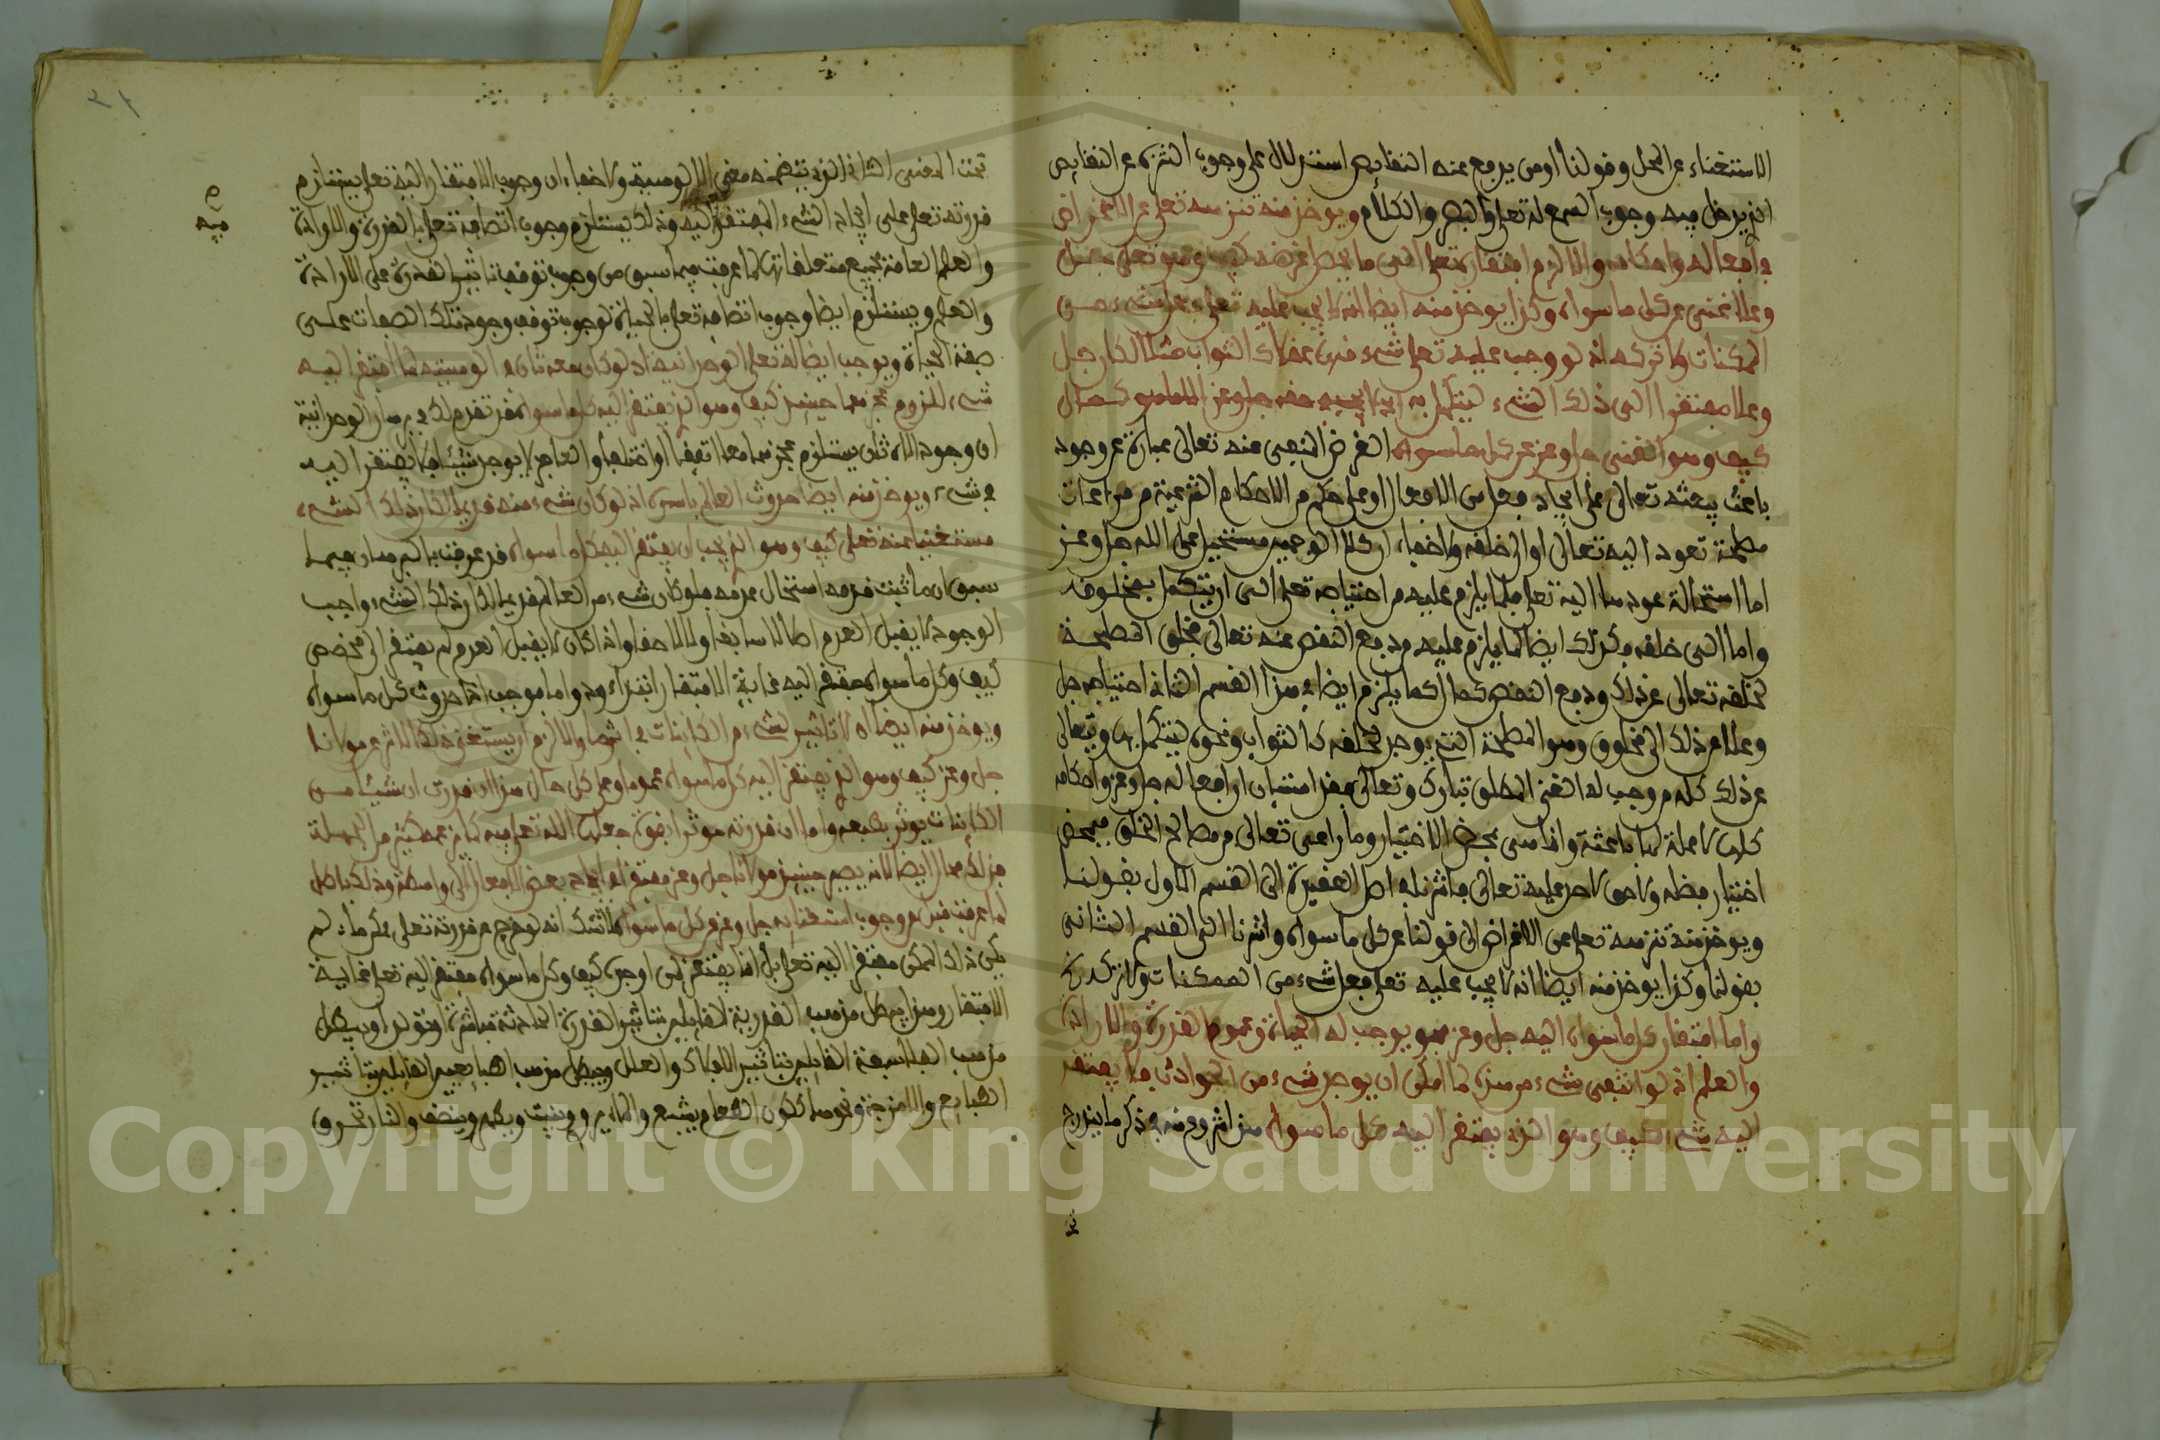 الاستغناء عن المحل وقولنا اومن يدفع عنه النقايص استدلال على وجوب التنزه عن النقايص
اذ يدخل فيه وجوب السمع له تعلى والبصر والكلام ويوخذ منه تنزهه تعلى عن الاغراض
في افعاله واحكامه والا لزم افتقاره تعلى الى ما يحصل غرضه كيف وهو تعلى جل
وعلا الغنى عن كل ما سواه وكذا يوخذ منه ايضا انه لا يجب عليه تعلى فعل شيء من
الممكنات ولا تركه اذ لو وجب عليه تعلى شيء منها عقلا كالثواب مثلا لكان جل
وعلا مفتقرا الى ذلك الشيء ليتكمل به اذ لا يجب في حقه جل وعز الا ما هو كمال
كيف وهو الغنى جل وعز عن كل ما سواه الغرض المنفى عنه تعالى عبارة عن وجود
باعث يبعثه تعالى على ايجاد فعل من الافعال او على حكم من الاحكام الشرعية من مراعات
مصلحة تعود اليه تعالى او الى خلقه ولا خفاء ان كلا الوجهين مستحيل على الله جل وعز
اما استحالة عودها اليه تعلى فلما يلزم عليه من احتياجه تعلى الى ان يتكمل بمخلوقه
واما الى خلقه فكذلك ايضا لما يلزم عليه من دفع النقص عنه تعالى بخلق المصلحة
لخلقه تعالى عن ذلك ودفع النقص كمال كما يلزم ايضا في هذا القسم الثانى احتياجه جل
وعلا عن ذلك الى مخلوق وهو المصلحة التى يوجد لخلقه كالثواب ونحوه ليتكمل بها ويتعالى
عن ذلك كله من وجب له الغنى المطلق تبارك وتعالى فقد استبان ان افعاله جل وعز واحكامه
كلها لا علة لها باعثة وانما هى بمحض الاختيار وما راعى تعالى من مصالح الخلق فبمحض
اختيار فضله ولا حق لاحد عليه تعالى فاشرنا في اصل العقيدة الى القسم الاول بقولنا
ويوخذ منه تنزهه تعلى عن الاغراض الى قولنا عن كل ما سواه واشرنا الى القسم الثانى
بقولنا وكذا يوخذ منه ايضا انه لا يجب عليه تعلى فعل شيء من الممكنات ولا تركه
واما افتقار كل ما سواه اليه جل وعز فهو يوجب له الحياة وعموم القدرة والارادة
والعلم اذ لو انتفى شيء من هذه لما امكن ان يوجد شيء من الحوادث فلا يفتقر
اليه شيء كيف وهو الذى يفتقر اليه كل ما سواه هذا شروع منه في ذكر ما يندرج
تحت المعنى الثانى الذى تتضمنه معنى الالوهية ولا خفاء ان وجوب الافتقار اليه تعلى يستلزم
قدرته تعلى على ايجاد الشيء المفتقر اليه وذلك يستلزم وجوب اتصافه تعلى بالقدرة والارادة
والعلم العامة بجميع متعلقاتها لما عرفت فيما سبق من وجوب توقف تاثير القدرة على الارادة
والعلم ويستلزم ايضا وجوب اتصافه تعلى بالحياة لوجوب توقف وجود تلك الصفات على
صفة الحياة ويوجب ايضا له تعلى الوحدانية اذ لو كان معه ثان في الوهيته لما افتقر اليه
شيء للزوم عجزهما حينئذ كيف وهو الذى يفتقر اليه كل ما سواه قد تقدم لك في برهان الوحدانية
ان وجود الاه ثان يستلزم عجزهما معا اتفقا او اختلفا والعاجز لا يوجد شيئا فلا يفتقر اليه
في شيء ويوخذ منه ايضا حدوث العالم باسره اذ لو كان شيء منه قديما لكان ذلك الشيء
مستغنيا عنه تعلى كيف وهو الذى يجب ان يفتقر اليه كل ما سواه قد عرفت بالبرهان فيما
سبق ان ما ثبت قدمه استحال عدمه فلو كان شيء من العالم قديما لكان ذلك الشيء واجب
الوجود لا يقبل العدم اصلا لا سابقا ولا لاحقا واذا كان لا يقبل العدم لم يفتقر الى مخصص
كيف وكل ما سواه مفتقر اليه غاية الافتقار ابتداء ودواما فوجب اذا حدوث كل ما سواه
ويوخذ منه ايضا ان لا تاثير لشيء من الكائنات في اثر ما والا لزم ان يستغنى ذلك الاثر عن مولانا
جل وعز كيف وهو الذى يفتقر اليه كل ما سواه عموما وعلى كل حال هذا ان قدرت ان شيئا من
الكائنات يوثر بطبعه واما ان قدرته موثرا بقوة جعلها الله تعلى فيه كما يزعمه كثير من الجهلة
فذلك محال ايضا لانه يصير حينئذ مولانا جل وعز مفتقرا في ايجاد بعض الافعال الى واسطة وذلك باطل
لما عرفت قبل من وجوب استغنائه جل وعز عن كل ما سواه لا شك انه لو خرج عن قدرته تعلى ممكن ما لم
يكن ذلك الممكن مفتقرا اليه تعلى بل انما يفتقر لمن اوجده كيف وكل ما سواه مفتقر اليه تعلى غاية
الافتقار وبهذا يبطل مذهب القدرية القايلين بتاثير القدرة الحادثة مباشرة او تولدا ويبطل
مذهب الفلاسفة القايلين بتاثير الافلاك والعلل ويبطل مذهب الطبايعيين القايلين بتاثير
الطبايع والامزجة ونحوها ككون الطعام يشبع والماء يروى وينبت ويطهر وينظف والنار تحرق
فيه